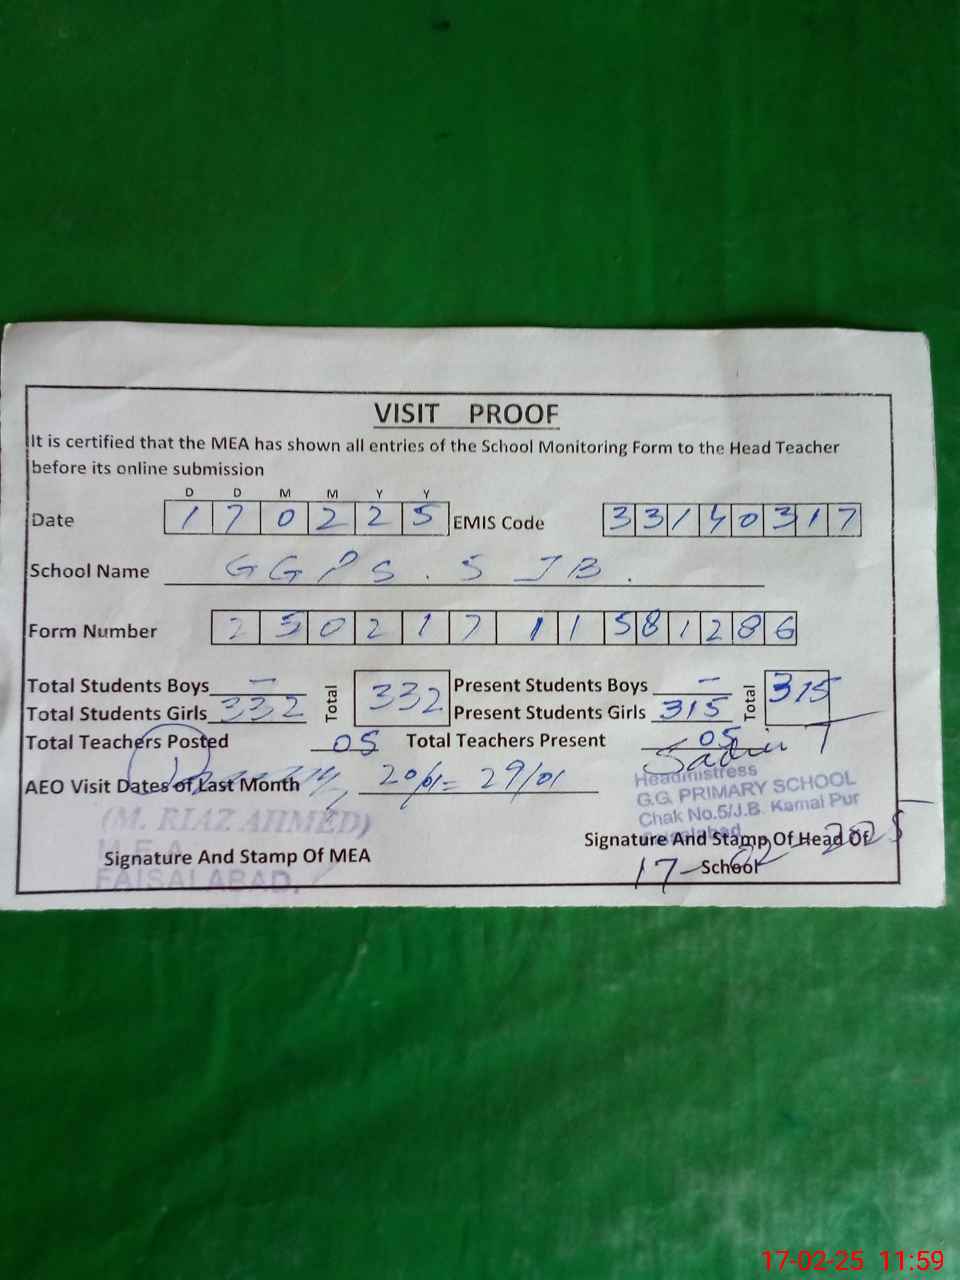 VISIT PROOF
It is certified that the MEA has shown all entries of the School Monitoring Form to the Head Teacher
before its online submission
D D M M Y Y
Date 1 7 0 2 2 5 EMIS Code 3 3 1 4 0 3 1 7
School Name GGPS. 5 JB.
Form Number 2 5 0 2 1 7 1 1 5 8 1 2 8 6
Total Students Boys - Total 332 Present Students Boys - Total 315
Total Students Girls 332 Present Students Girls 315
Total Teachers Posted 05 Total Teachers Present 05
AEO Visit Dates of Last Month 20/01 = 29/01
Headmistress
G.G. PRIMARY SCHOOL
Chak No.5/J.B. Kamal Pur
Faisalabad
(M. RIAZ AHMED)
M.E.A
FAISALABAD.
Signature And Stamp Of MEA
Signature And Stamp Of Head Of
School
17-02-2025
17-02-25 11:59